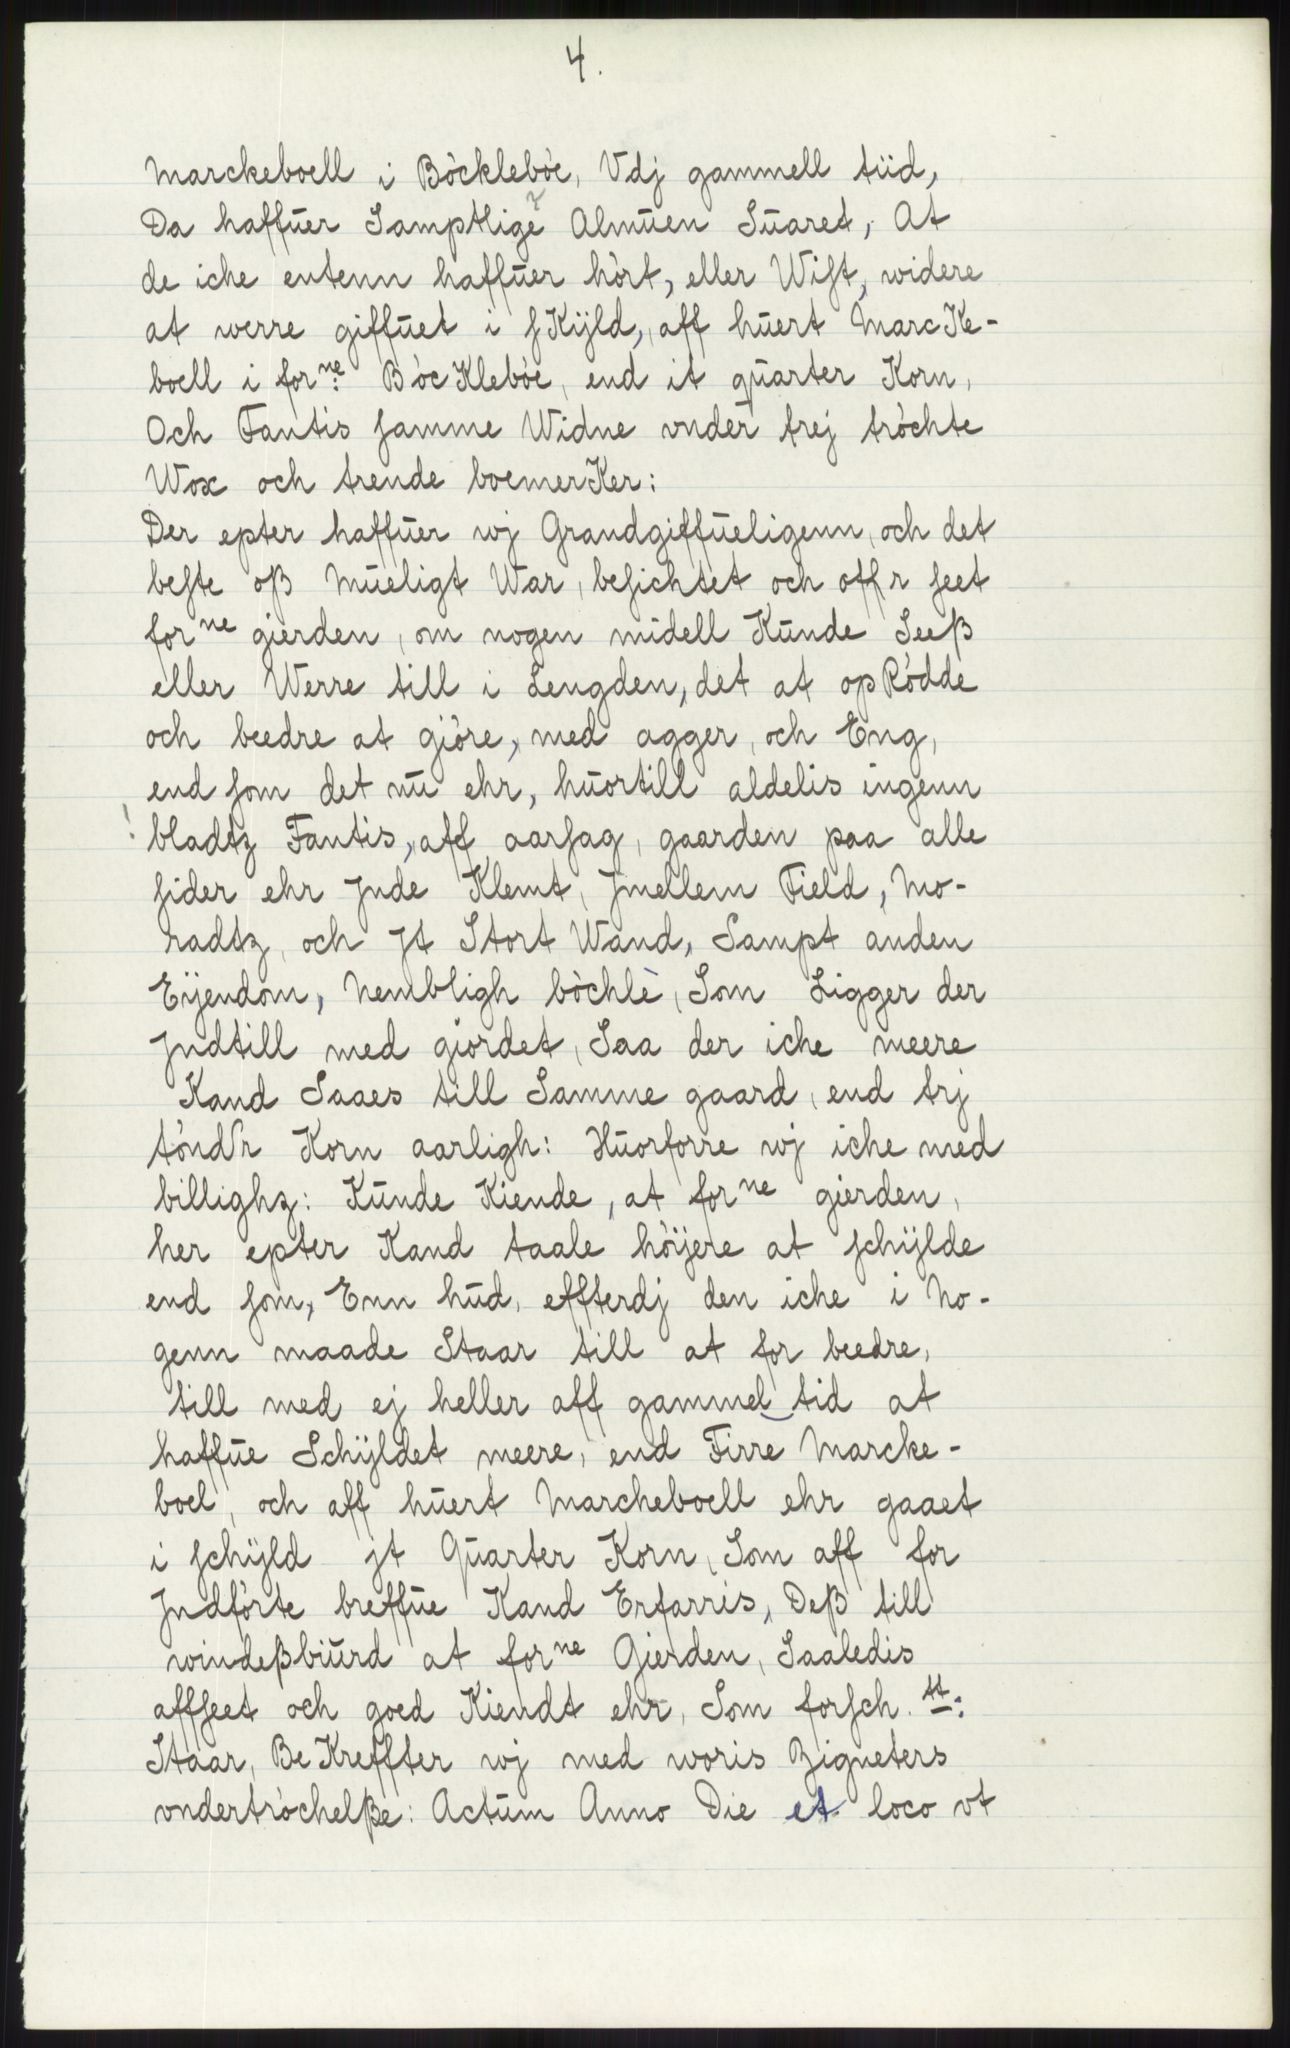 4.
Marckeboell i Böckleböe, Vdj gammell tiid,
Da haffuer Samptlige Almuen Suaret, At
de iche entenn haffuer hört, eller Wist, widere
at werre giffuet i sKijld, aff huert MarcKe-
boell i forne: BöcKleböe, end it quarter Korn,
Och Fantis samme Widne vnder trej tröchte
Wox och trende boemerKer:
Der epter haffuer wj Grandgiffueligenn, och det
beste oß Mueligt War, besichtet och offr seet
forne gierden, om nogen midell Kunde Seeß
eller Werre till i Lengden, det at opRödde
och beedre at giöre, med agger, och Eng,
end som det nu ehr, huortill aldelis ingenn
! bladtz Fantis, aff aarsag, gaarden paa alle
sider ehr Jnde Klemt, Jmellem Field, Mo-
radtz, och Jt Stort Wand, Sampt anden
Eijendom, Nembligh böchlè, Som Ligger der
Jndtill med giördet, Saa der iche meere
Kand Saaes till Samme gaard, end trj
töndr Korn aarligh: Huorforre wj iche med
billighz: Kunde Kiende, at forne gierden,
her epter Kand taale höijere at schijlde
end som, Enn hud, effterdj den iche i No-
genn maade Staar till at for beedre,
till med ej heller aff gammel tid at
haffue Schijldet meere, end Firre Marcke-
boel, och aff huert Marcheboell ehr gaaet
i schijld jt Quarter Korn, Som aff for
Jndförte breffue Kand Erfarris, Deß till
windeßbiurd at forne Gierden, Saaledis
affseet och goed Kiendt ehr, Som forsch. tt:
Staar, BeKreffter wj med woris Zigneters
vndertröchelße: Actum Anno Die et loco vt